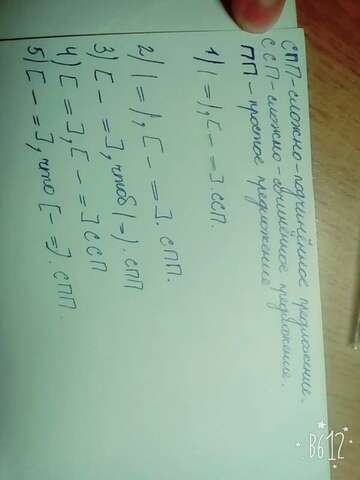 СПП-сложно-подчинённое предложение.
ССП-сложно-сочинённое предложение.
ПП-простое предложение.
1) (=), [- =]. ССП.
2) (=), [- =]. СПП.
3) [- =], чтоб (=). СПП
4) [=], [- =] ССП
5) [- =], что [- =). СПП.
B612